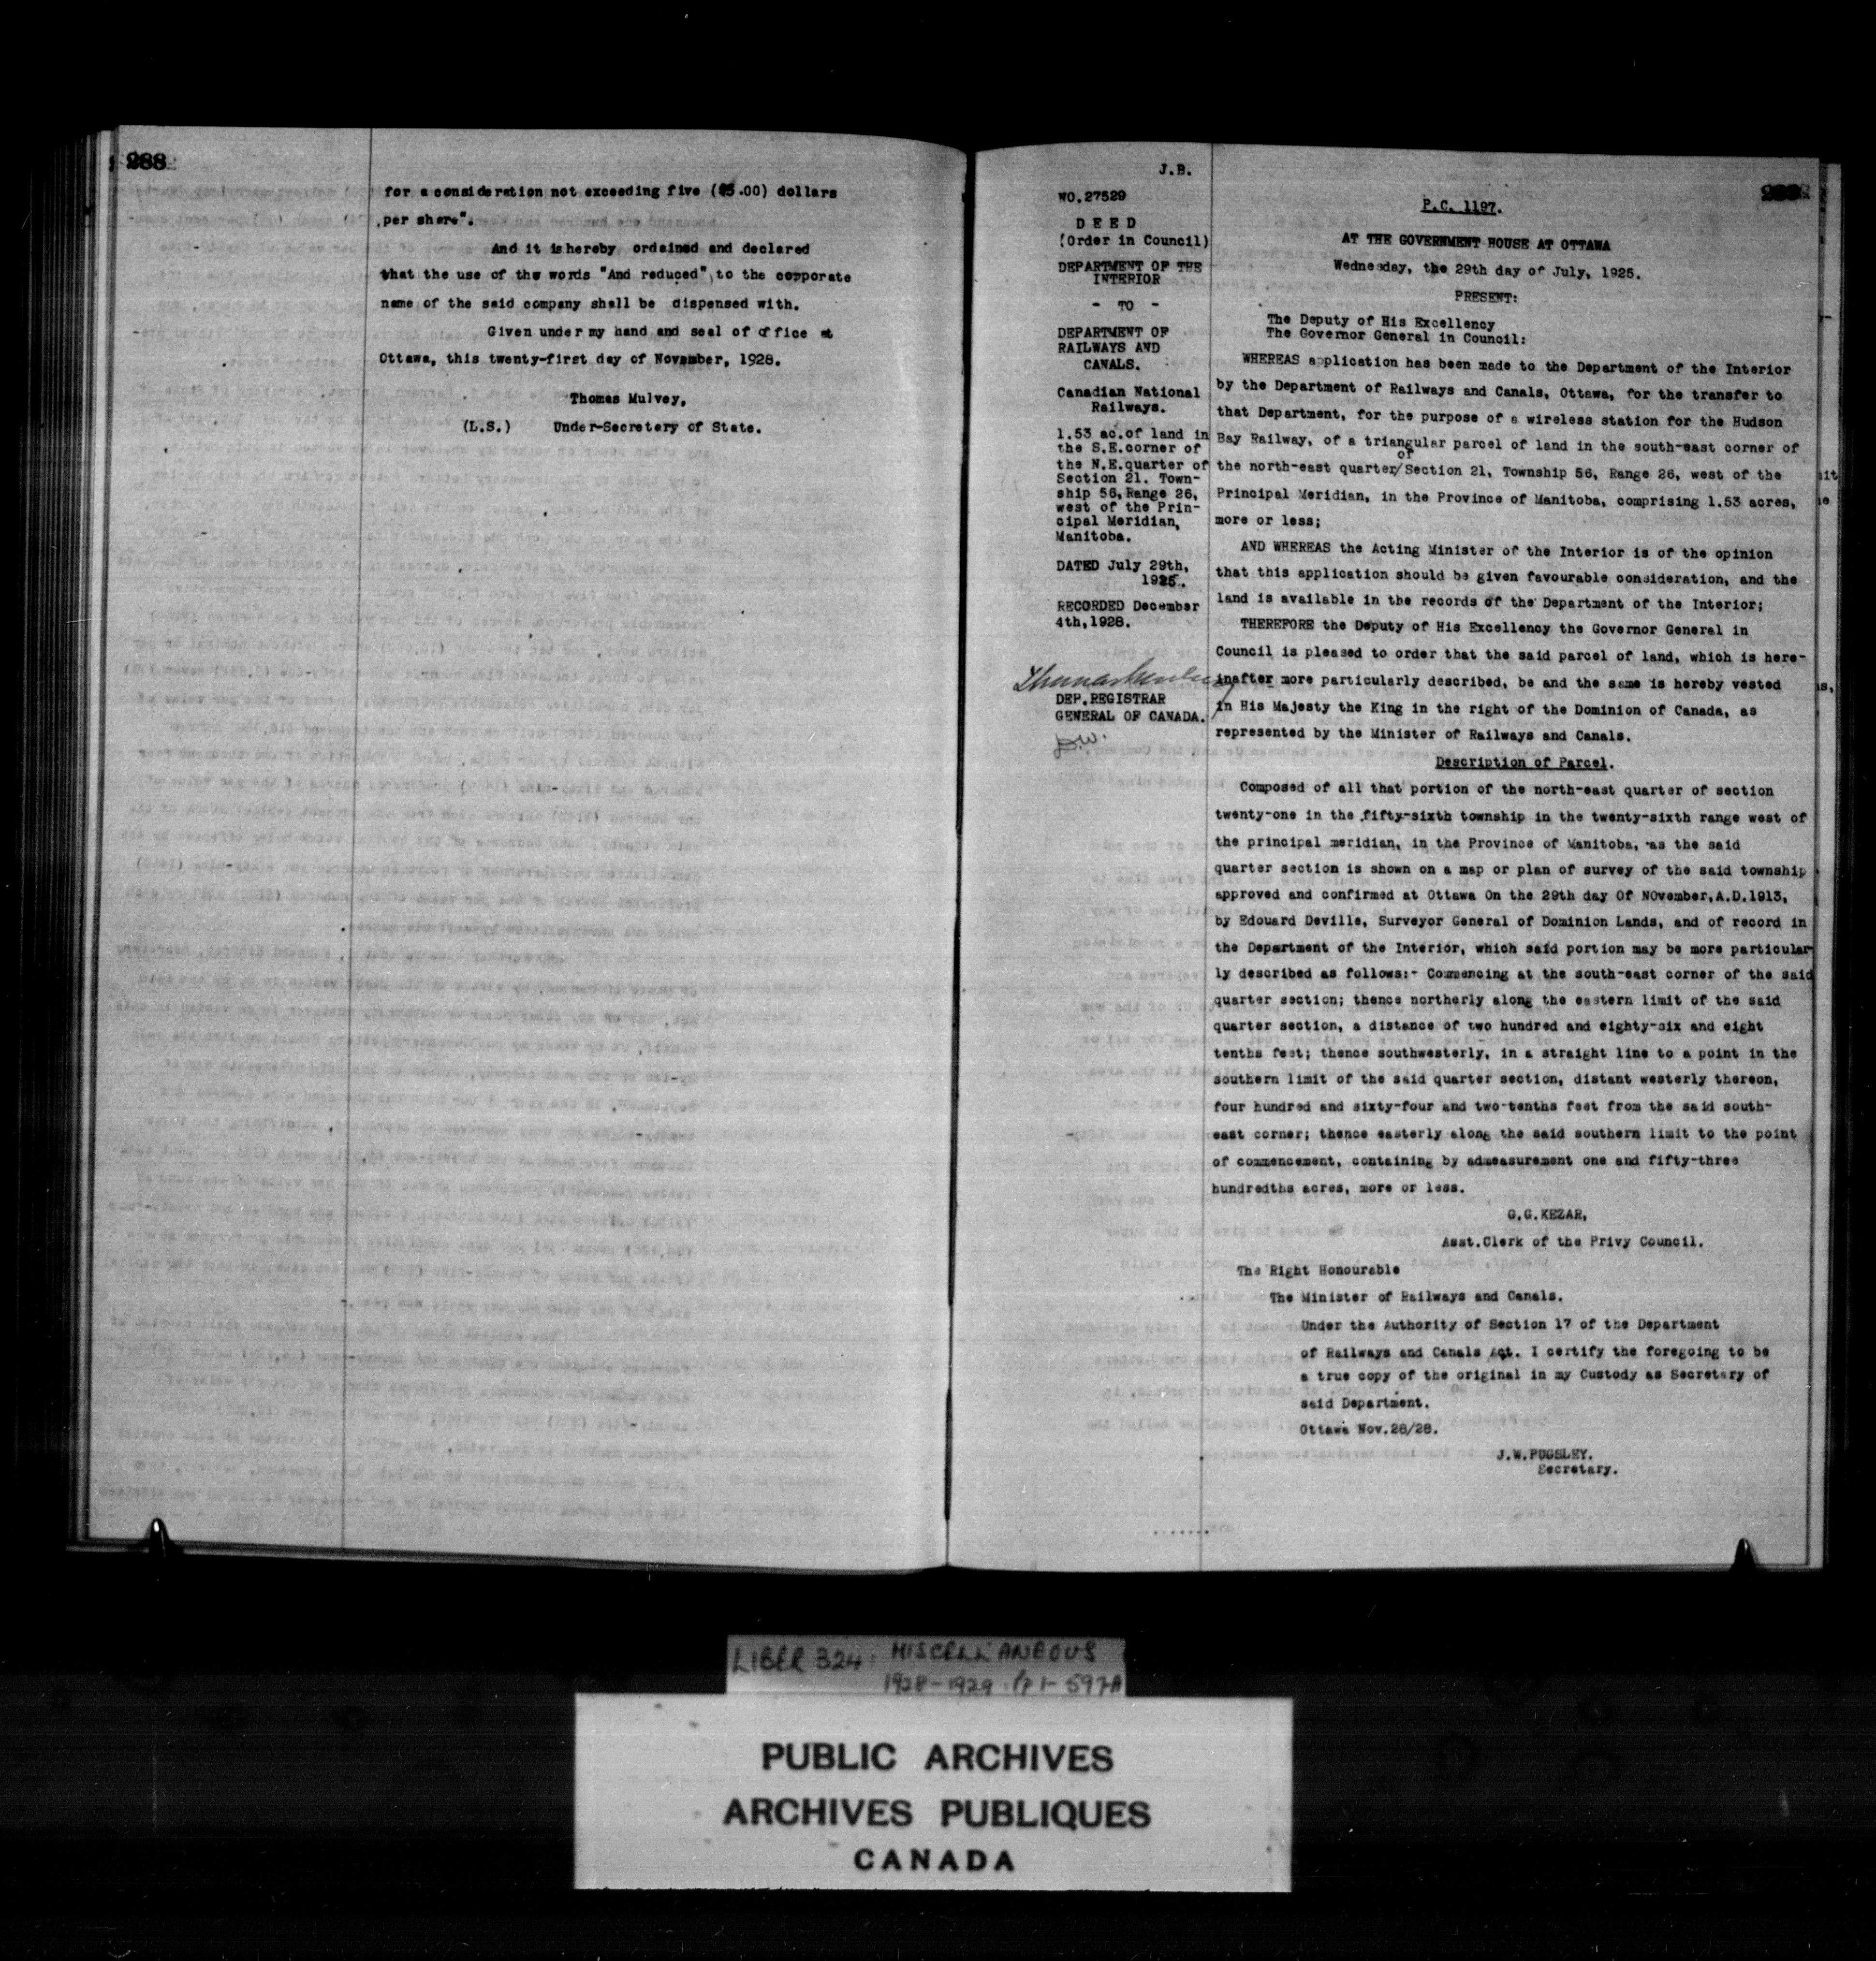 288
for a consideration not exceeding five ($5.00) dollars
per share".
And it is hereby ordained and declared
that the use of the words "And reduced", to the corporate
name of the said company shall be dispensed with.
Given under my hand and seal of office at
Ottawa, this twenty-first day of November, 1928.
Thomas Mulvey,
(L.S.) Under-Secretary of State.
J.B.
NO.27529
D E E D
(Order in Council)
DEPARTMENT OF THE
INTERIOR
- TO -
DEPARTMENT OF
RAILWAYS AND
CANALS.
Canadian National
Railways.
1.53 ac.of land in
the S.E.corner of
the N.E.quarter of
Section 21. Town-
ship 56,Range 26,
west of the Prin-
cipal Meridian,
Manitoba.
DATED July 29th,
1925.
RECORDED December
4th,1928.
DEP.REGISTRAR
GENERAL OF CANADA.
P.C. 1197.
AT THE GOVERNMENT HOUSE AT OTTAWA
Wednesday, the 29th day of July, 1925.
PRESENT:
The Deputy of His Excellency
The Governor General in Council:
WHEREAS application has been made to the Department of the Interior
by the Department of Railways and Canals, Ottawa, for the transfer to
that Department, for the purpose of a wireless station for the Hudson
Bay Railway, of a triangular parcel of land in the south-east corner of
the north-east quarter/of Section 21, Township 56, Range 26, west of the
Principal Meridian, in the Province of Manitoba, comprising 1.53 acres,
more or less;
AND WHEREAS the Acting Minister of the Interior is of the opinion
that this application should be given favourable consideration, and the
land is available in the records of the Department of the Interior;
THEREFORE the Deputy of His Excellency the Governor General in
Council is pleased to order that the said parcel of land, which is here-
inafter more particularly described, be and the same is hereby vested
in His Majesty the King in the right of the Dominion of Canada, as
represented by the Minister of Railways and Canals.
Description of Parcel.
Composed of all that portion of the north-east quarter of section
twenty-one in the fifty-sixth township in the twenty-sixth range west of
the principal meridian, in the Province of Manitoba, as the said
quarter section is shown on a map or plan of survey of the said township
approved and confirmed at Ottawa On the 29th day Of NOvember,A.D.1913,
by Edouard Deville, Surveyor General of Dominion Lands, and of record in
the Department of the Interior, which said portion may be more particular-
ly described as follows:- Commencing at the south-east corner of the said
quarter section; thence northerly along the eastern limit of the said
quarter section, a distance of two hundred and eighty-six and eight
tenths feet; thence southwesterly, in a straight line to a point in the
southern limit of the said quarter section, distant westerly thereon,
four hundred and sixty-four and two-tenths feet from the said south-
east corner; thence easterly along the said southern limit to the point
of commencement, containing by admeasurement one and fifty-three
hundredths acres, more or less.
G.G.KEZAR,
Asst.Clerk of the Privy Council.
The Right Honourable
The Minister of Railways and Canals.
Under the Authority of Section 17 of the Department
of Railways and Canals Act. I certify the foregoing to be
a true copy of the original in my Custody as Secretary of
said Department.
Ottawa Nov.28/28.
J.W.PUGSLEY.
Secretary.
LIBER 324: MISCELLANEOUS
1928-1929 Pp 1-597A
PUBLIC ARCHIVES
ARCHIVES PUBLIQUES
CANADA